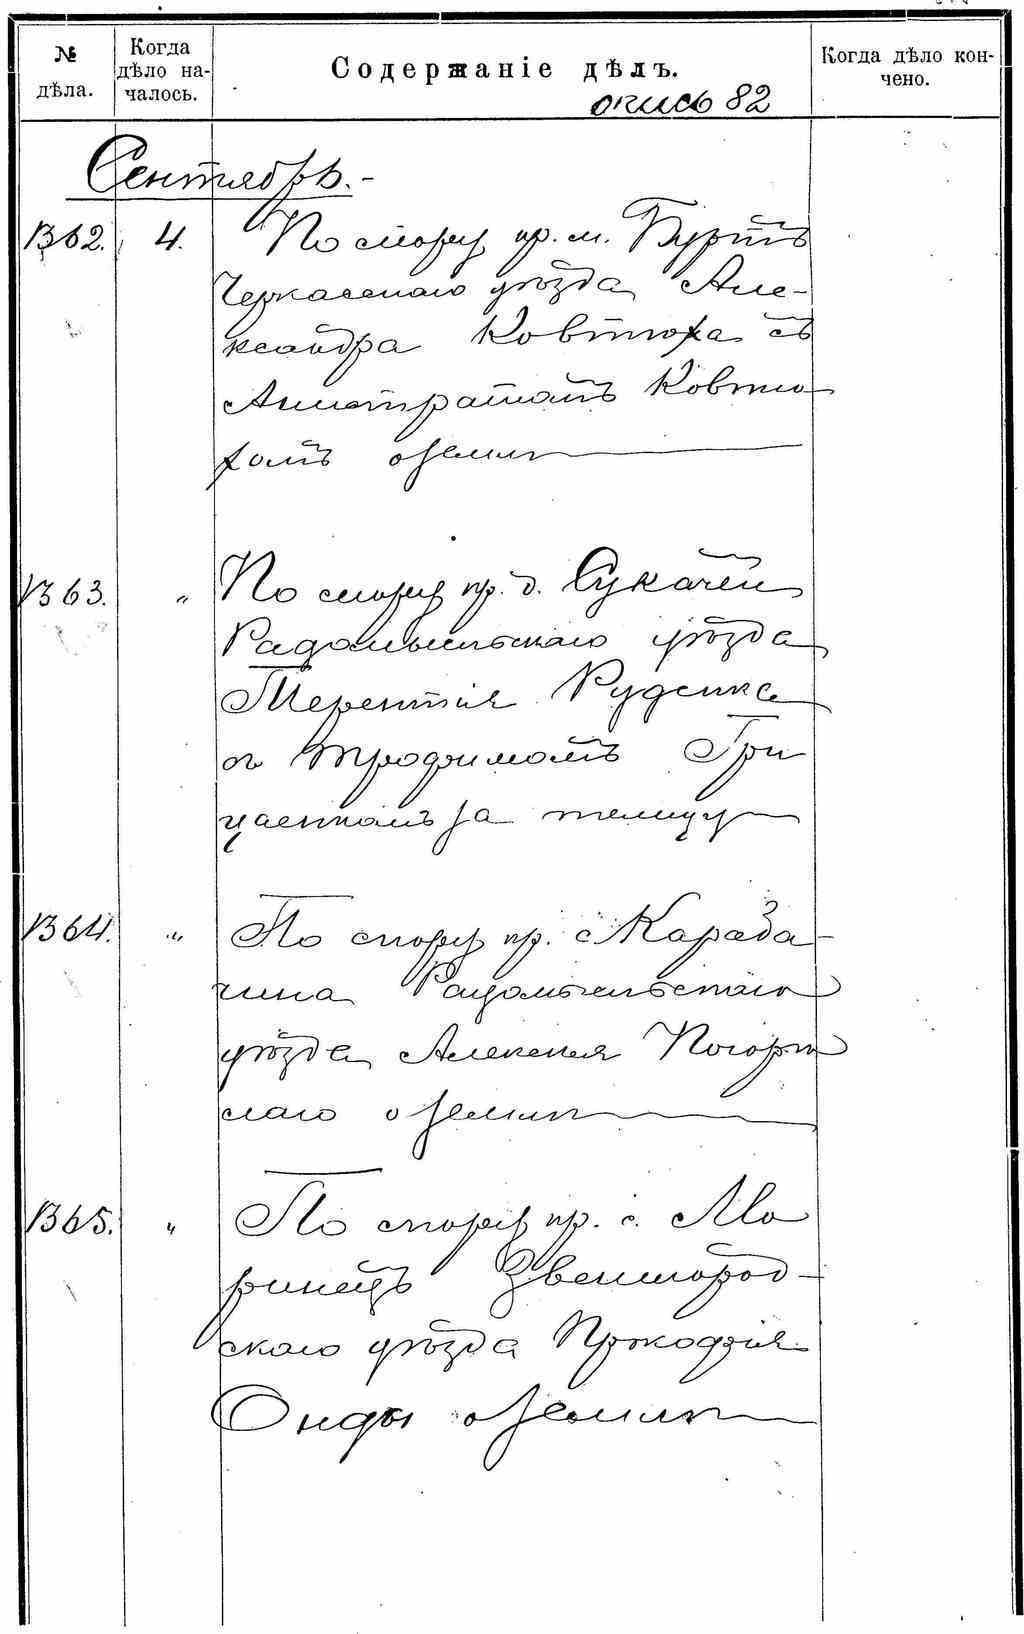 № дѣла.
Когда дѣло на-
чалось.
Содержаніе дѣлъ.
Когда дѣло кон-
чено.
опись 82
Сентябрь.-
1362. 4. По спору кр. м. Буртъ
Черкасскаго уѣзда Але-
ксандра Ковтюха съ
Калистратомъ Ковтю
хомъ о землѣ
1363. " По спору кр. д. Сукачей
Радомысльскаго уѣзда
Терентія Руденка
съ Трофимомъ Гри
цаенкомъ за телицу
1364. " По спору кр. с. Караба-
чина Радомысльскаго
уѣзда Алексея Погорѣ
лаго о землѣ
1365. " По спору кр. с. Мо
ринецъ Звенигород-
скаго уѣзда Прокофія
Онды о землѣ